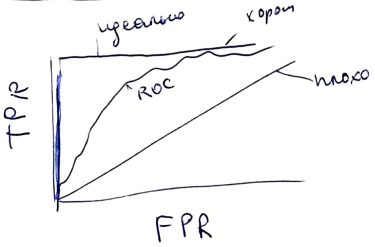 идеально
хорош
ROC
плохо
TPR
FPR